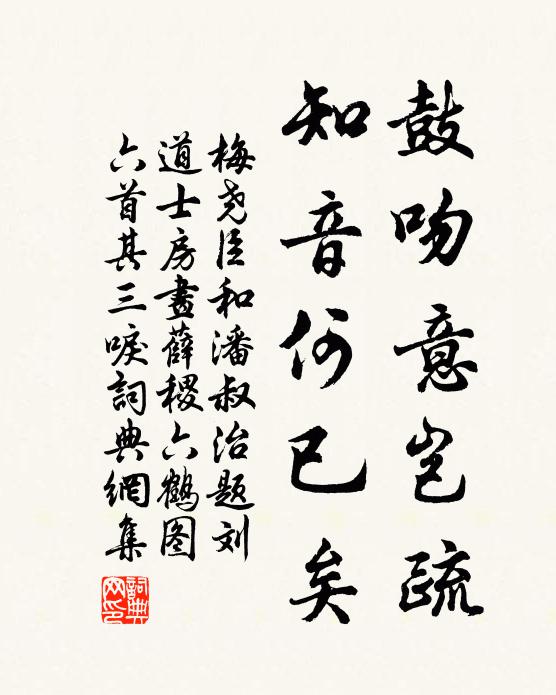 鼓吻意岂疏
知音何已矣
梅尧臣和潘叔治题刘
道士房畫薛稷六鶴图
六首其三唳詞典網集
詞典
网印